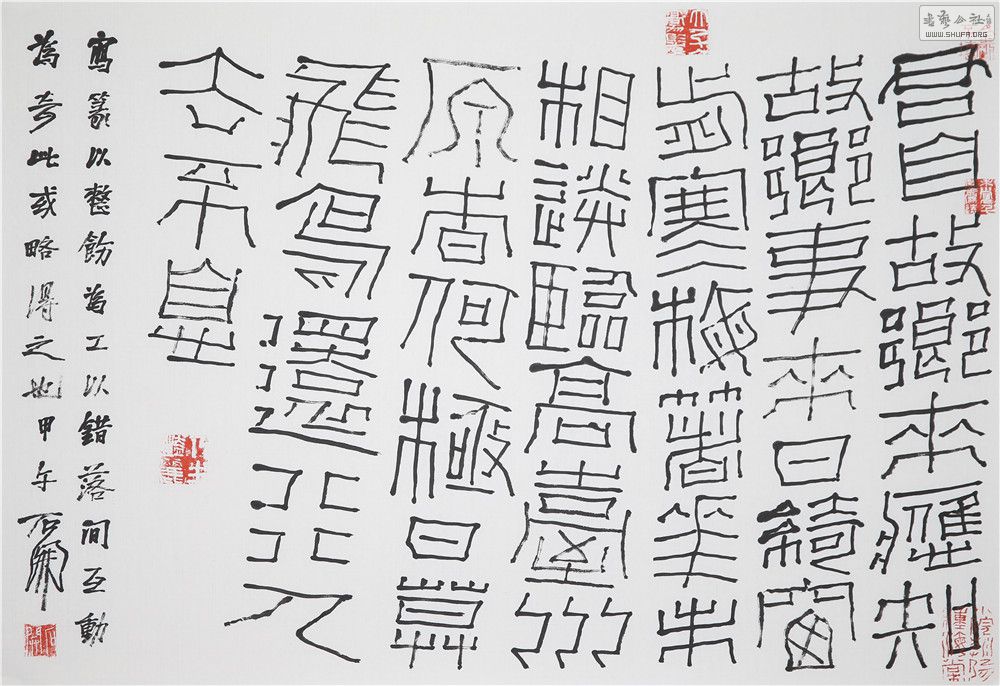 君自故鄉來應知
故鄉事來日綺窗
前寒梅著花未
相送臨高臺川
原杳何極日暮
飛鳥還行人
去不息
寫篆以整飭為工以錯落間互動
為奇此或略得之也甲午石開
WWW.SHUFA.ORG